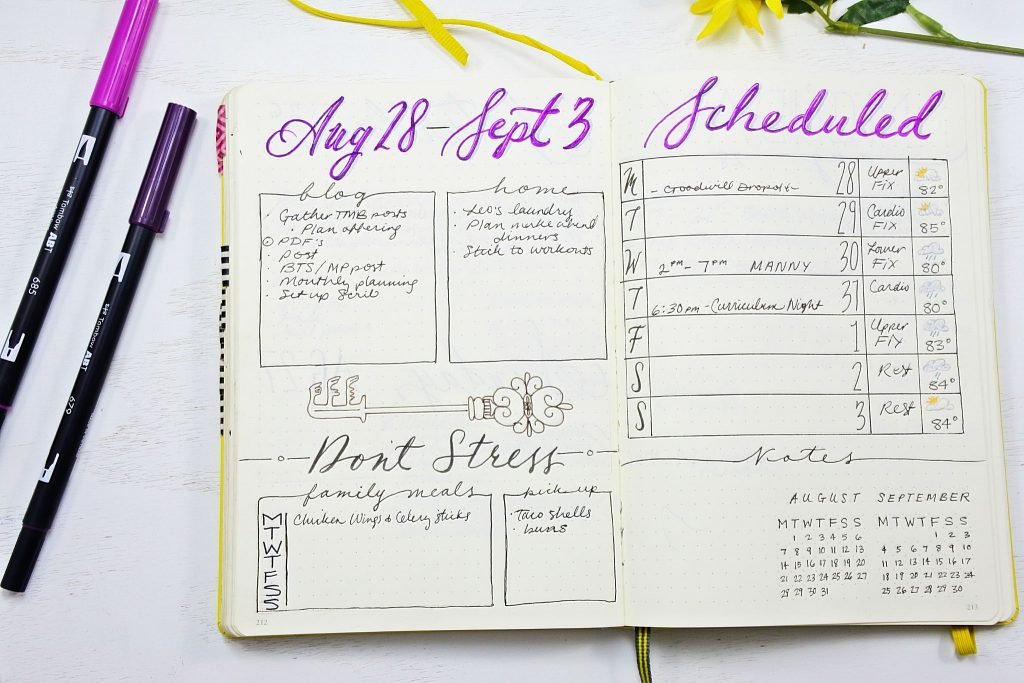 Aug 28 - Sept 3
blog
· Gather TMB posts
· Plan offering
PDF's
· Post
· BTS/MP post
· Monthly planning
· Set up
home
· Leo's laundry
· Plan make ahead
dinners
· Stick to workouts
Don't Stress
family meals
M Chicken Wings & Celery Sticks
T
W
T
F
S
S
pick up
· Taco Shells
· buns
212
Scheduled
M - Goodwill Dropoff - 28 Upper Fix 82°
T 29 Cardio FIX 85°
W 2PM - 7PM MANNY 30 Lower Fix 80°
T 6:30pm - Curriculum Night 31 Cardio 80°
F 1 Upper FIX 83°
S 2 Rest 84°
S 3 Rest 84°
Notes
AUGUST
MTWTFSS
1 2 3 4 5 6
7 8 9 10 11 12 13
14 15 16 17 18 19 20
21 22 23 24 25 26 27
28 29 30 31
SEPTEMBER
MTWTFSS
1 2 3
4 5 6 7 8 9 10
11 12 13 14 15 16 17
18 19 20 21 22 23 24
25 26 27 28 29 30
213
Tombow ABT
685
Tombow ABT
679